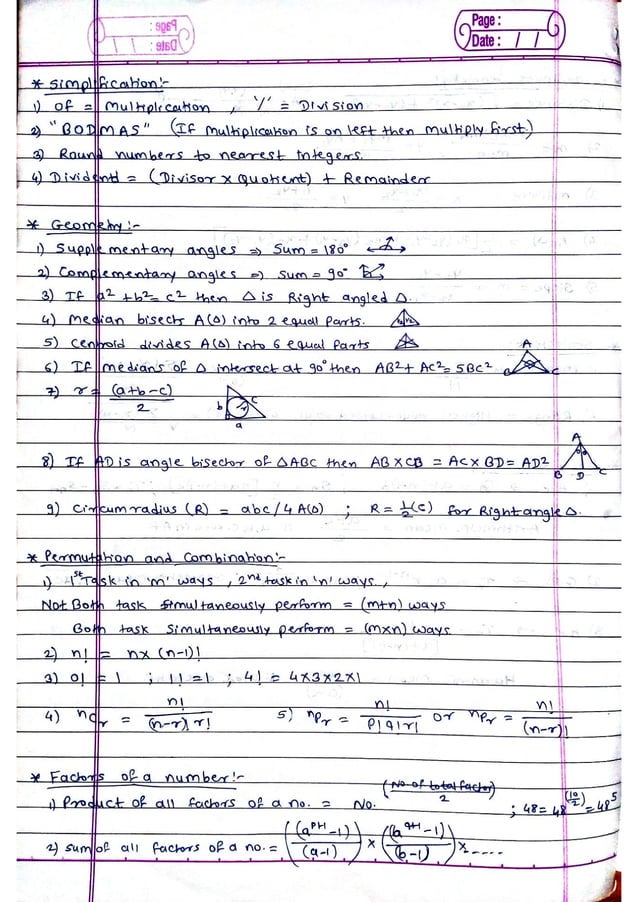 Page :
Date : / /
* Simplification:-
1) of = Multiplication , '/' = Division
2) "BODMAS" (If Multiplication is on left then multiply first.)
3) Round numbers to nearest integers.
4) Dividend = (Divisor x Quotient) + Remainder
* Geometry:-
1) Supplementary angles ⇒ Sum = 180°
2) Complementary angles ⇒ Sum = 90°
3) If a² + b² = c² then △ is Right angled △.
4) Median bisects A(△) into 2 equal parts.
5) Centroid divides A(△) into 6 equal parts
6) If medians of △ intersect at 90° then AB² + AC² = 5BC²
A
B C
7) r = (a+b-c)/2
b c r
a
8) If AD is angle bisector of △ABC then AB x CD = AC x BD = AD²
A
B D C
9) Circumradius (R) = abc/4 A(△) ; R = ½(c) for Right angle △.
* Permutation and Combination:-
1) 1st Task in 'm' ways , 2nd task in 'n' ways ,
Not Both task simultaneously perform = (m+n) ways
Both task simultaneously perform = (m×n) ways
2) n! = n× (n-1)!
3) 0! = 1 ; 1! = 1 ; 4! = 4×3×2×1
4) nCr = n!/(n-r)! r! 5) nPr = n!/P!q!r! or nPr = n!/(n-r)!
* Factors of a number:-
1) Product of all factors of a no. = No.^(No of total factor)/2 ; 48 = 48^(10/2) = 48⁵
2) Sum of all factors of a no. = ((a^(p+1) -1)/(a-1)) × ((b^(q+1) -1)/(b-1)) × .....